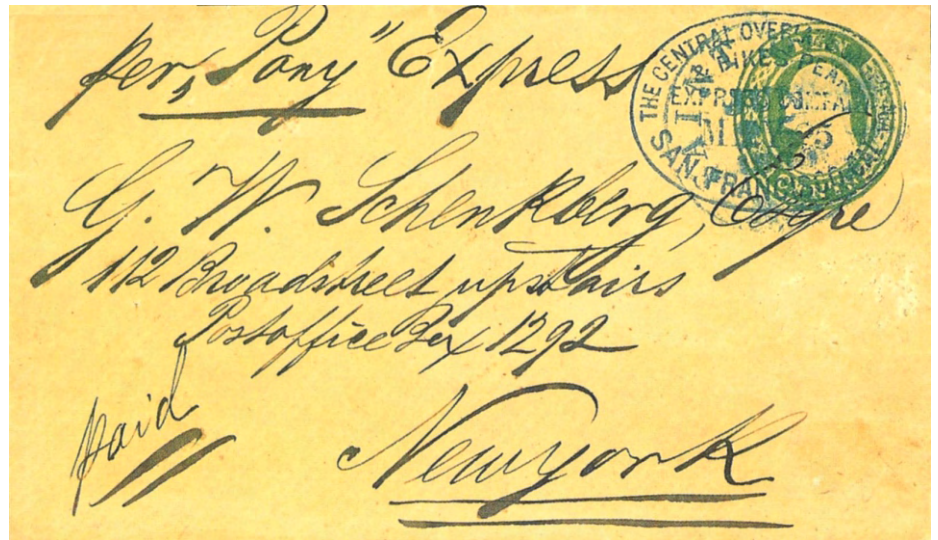 per, "Pony" Express
THE CENTRAL OVERL
& PIKES PEAK
EXPRESS COMPANY
SAN FRANCISCO CAL
G. W. Schenkberg,
112 Broadstreet upstairs
Postoffice Box 1292
paid
Newyork